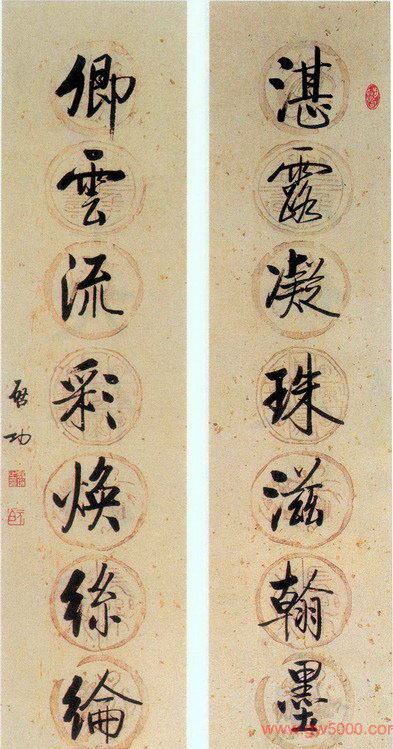 湛露凝珠滋翰墨
卿雲流彩煥絲綸
啓功
www.gw5000.com